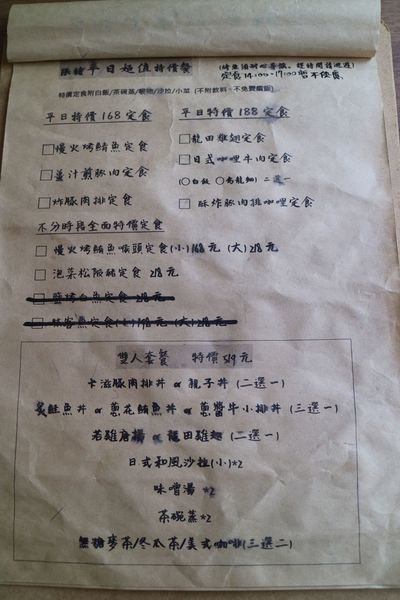 限時平日超值特價餐
定食14:00-17:00暫不供應
特價定食附白飯/茶碗蒸/味噌湯/沙拉/小菜 (不附飲料、不免費續飯)
平日特價168定食
平日特價188定食
□慢火烤鯖魚定食
□薑汁煎豚肉定食
□炸豚肉排定食
□龍田雞翅定食
□日式咖哩牛肉定食
(○白飯 ○烏龍麵) 二選一
□酥炸豚肉排咖哩定食
不分時段全面特價定食
□慢火烤鮪魚喉頭定食(小)168元 (大)218元
□泡菜松阪豬定食 218元
雙人套餐 特價519元
卡滋豚肉排丼 or 親子丼 (二選一)
炙鮭魚丼 or 蔥花鮪魚丼 or 蔥鹽牛小排丼 (三選一)
若雞唐揚 or 龍田雞翅 (二選一)
日式和風沙拉(小)*2
味噌湯 *2
茶碗蒸*2
無糖麥茶/冬瓜茶/美式咖啡(三選二)